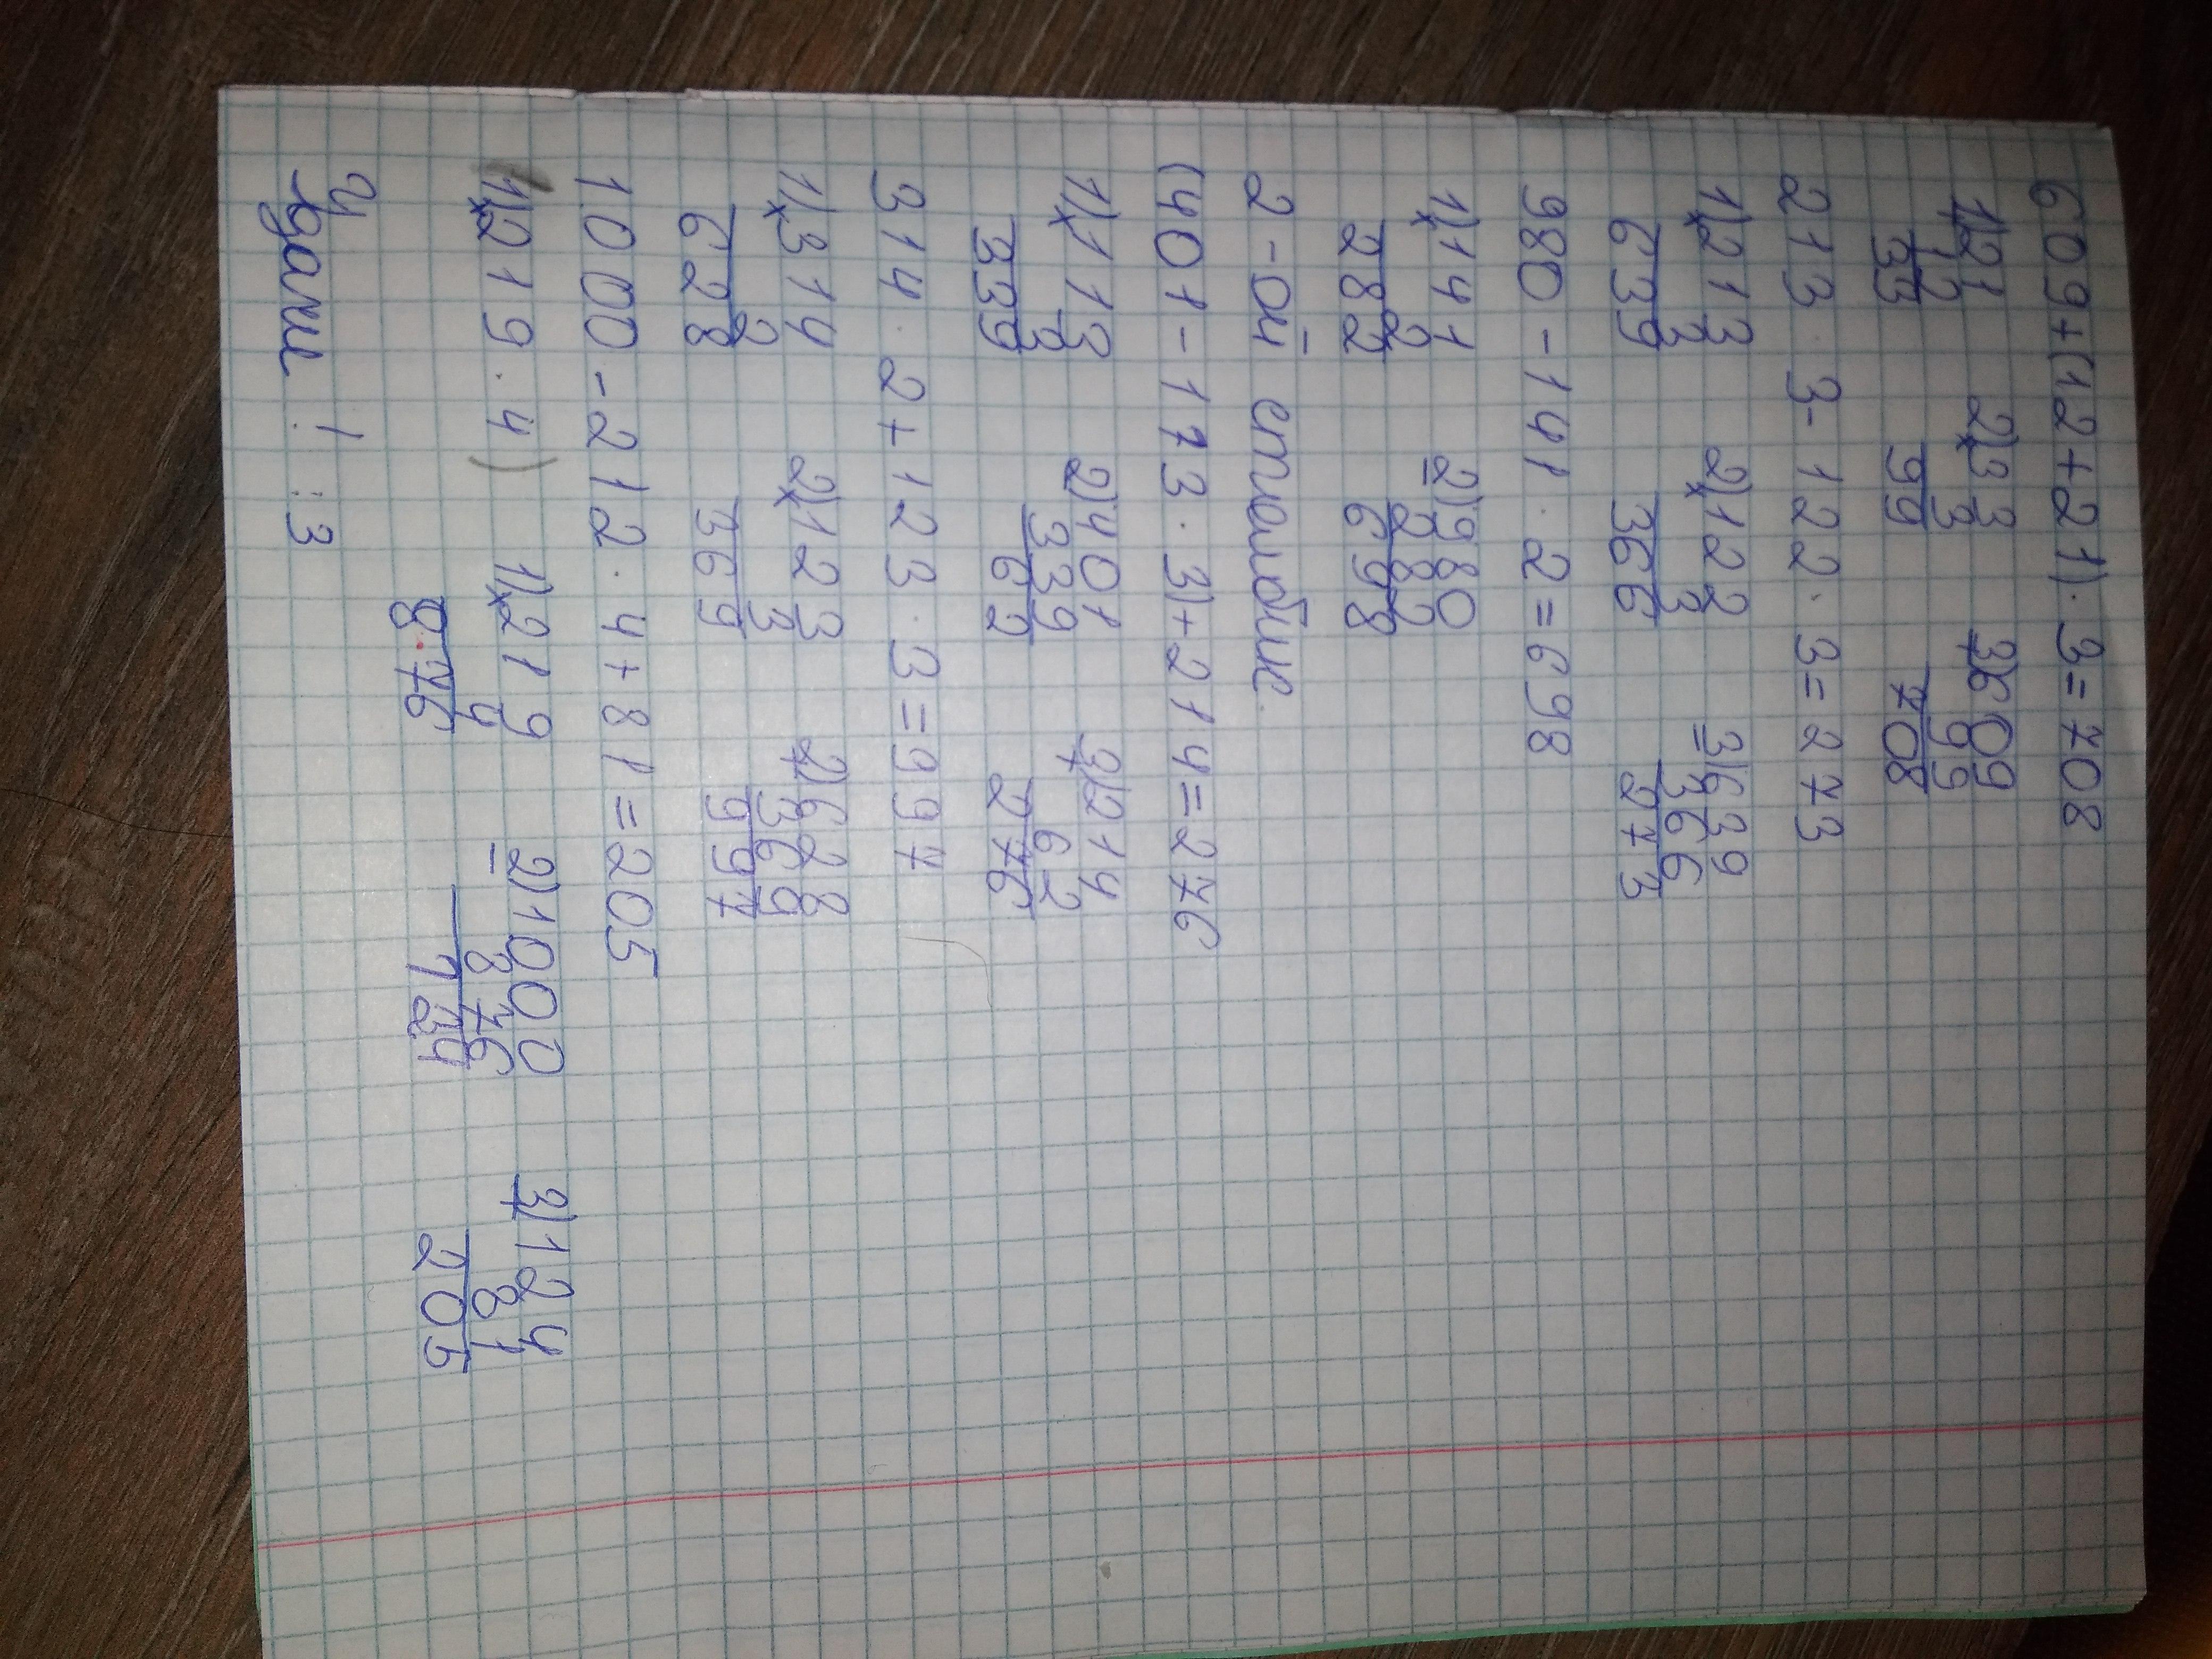 609+(12+21)·3=708
1)21 2)33 3)609
12 3 99
33 99 708
213·3-122·3=273
1)213 2)122 3)639
3 3 366
639 366 273
980-141·2=698
1)141 2)980
2 282
282 698
2-ой столбик.
(401-113·3)+214=276
1)113 2)401 3)214
3 339 62
339 62 276
314·2+123·3=997
1)314 2)123 2)628
2 3 369
628 369 997
1000-212·4+81=205
1)219·4) 1)219 2)1000 3)124
4 876 81
876 124 205
Удали ! :3